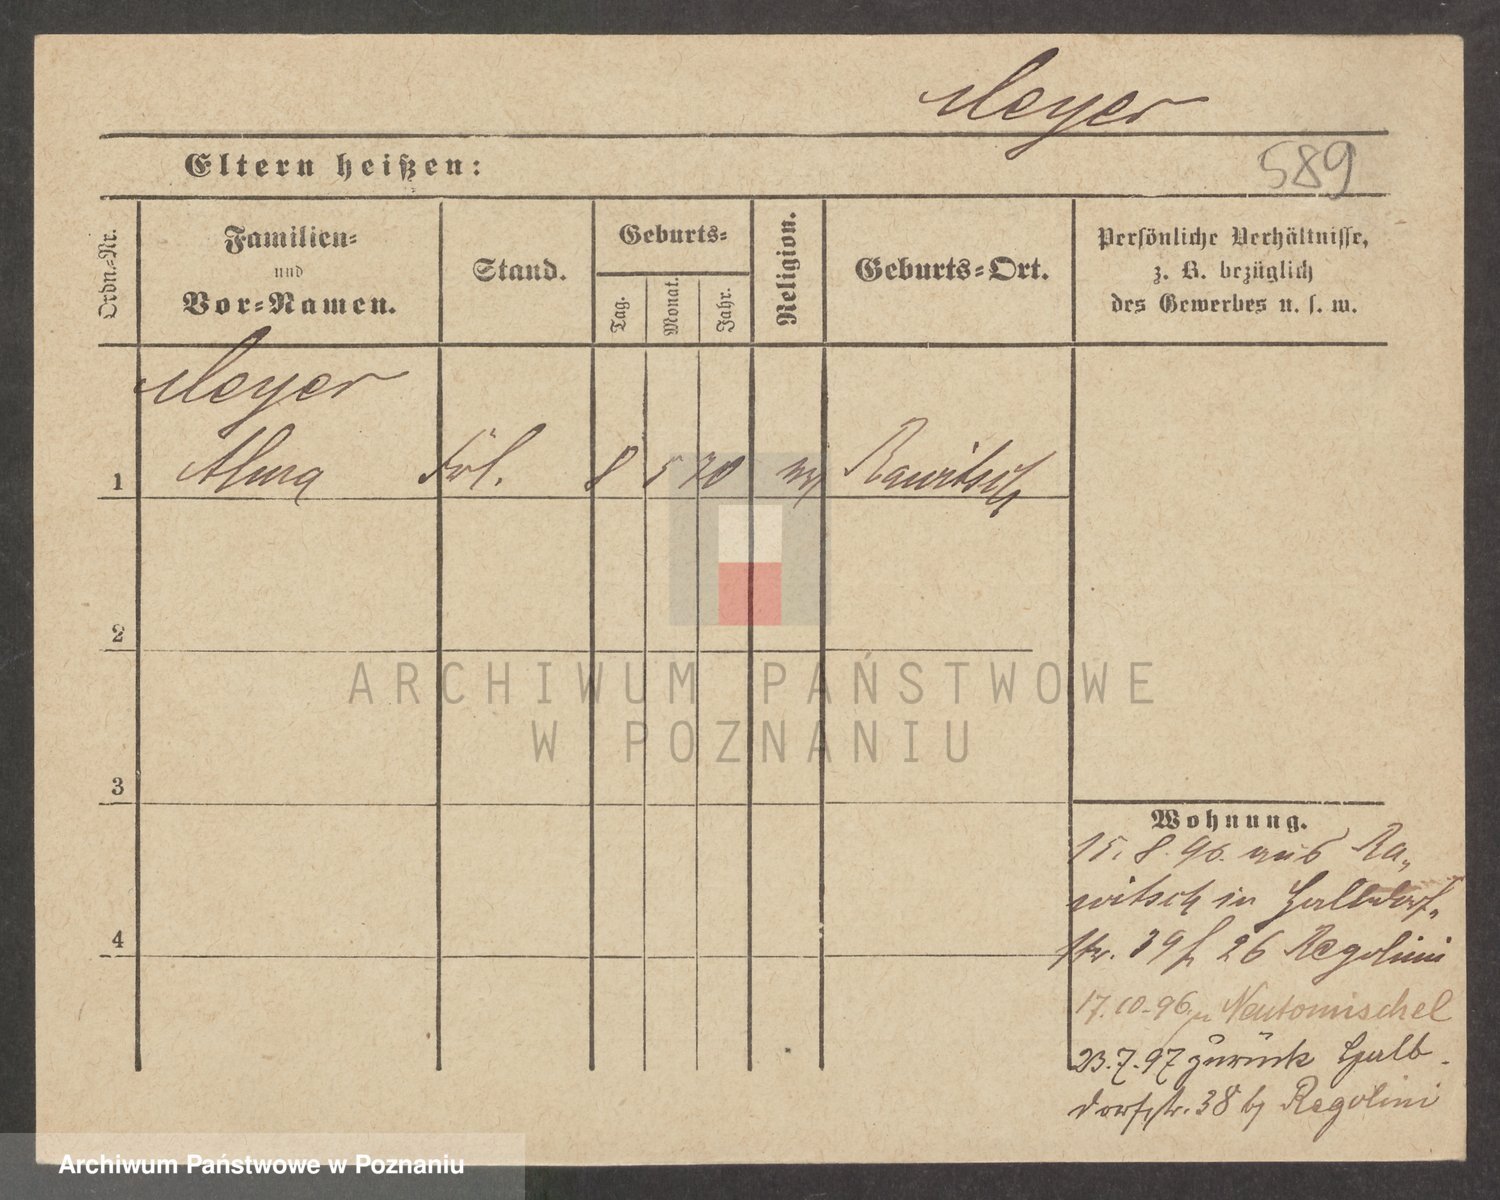 Meyer
Eltern heißen:
589
Ordn.-Nr.
Familien-
und
Vor-Namen.
Stand.
Geburts-
Tag.
Monat.
Jahr.
Religion.
Geburts-Ort.
Persönliche Verhältnisse,
z. B. bezüglich
des Gewerbes u. s. w.
Meyer
1 Alma Frl. 8 5 70 Rawitsch
2
3
4
Wohnung.
15.8.96. aus Ra-
witsch in Halbdorf-
str. 39 26 Regolini
17.10.96. Neutomischel
23.7.97 zurück Halb-
dorfstr. 38 b/ Regolini
ARCHIWUM PAŃSTWOWE
W POZNANIU
Archiwum Państwowe w Poznaniu